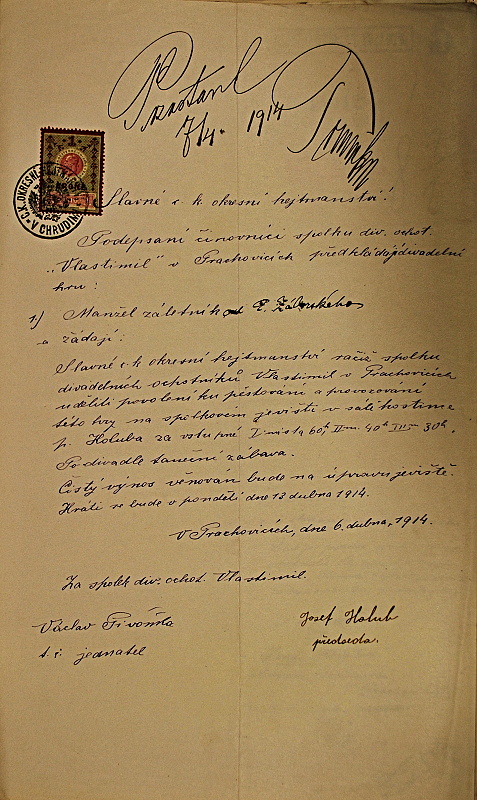 7/4. 1914
C.K. OKRESNÍ
V CHRUDIMI
1
Slavné c. k. okresní hejtmanství!
Podepsaní činovníci spolku div. ochot.
„Vlastimil" v Prachovicích předkládají divadelní
hru:
1) Manžel záletník od E.
a žádají:
Slavné c. k. okresní hejtmanství račiž spolku
divadelních ochotníků Vlastimil v Prachovicích
uděliti povolení ku pěstování a provozování
této hry na spolkovém jevišti v sále hostince
p. Holuba za vstupné I místa 60h II m. 40h III 30h.
Po divadle taneční zábava.
Čistý výnos věnován bude na úpravu jeviště.
Hráti se bude v pondělí dne 13 dubna 1914.
V Prachovicích, dne 6. dubna, 1914.
Za spolek div. ochot. Vlastimil.
Václav Pivoňka
t. č. jednatel
Josef Holub
předseda.